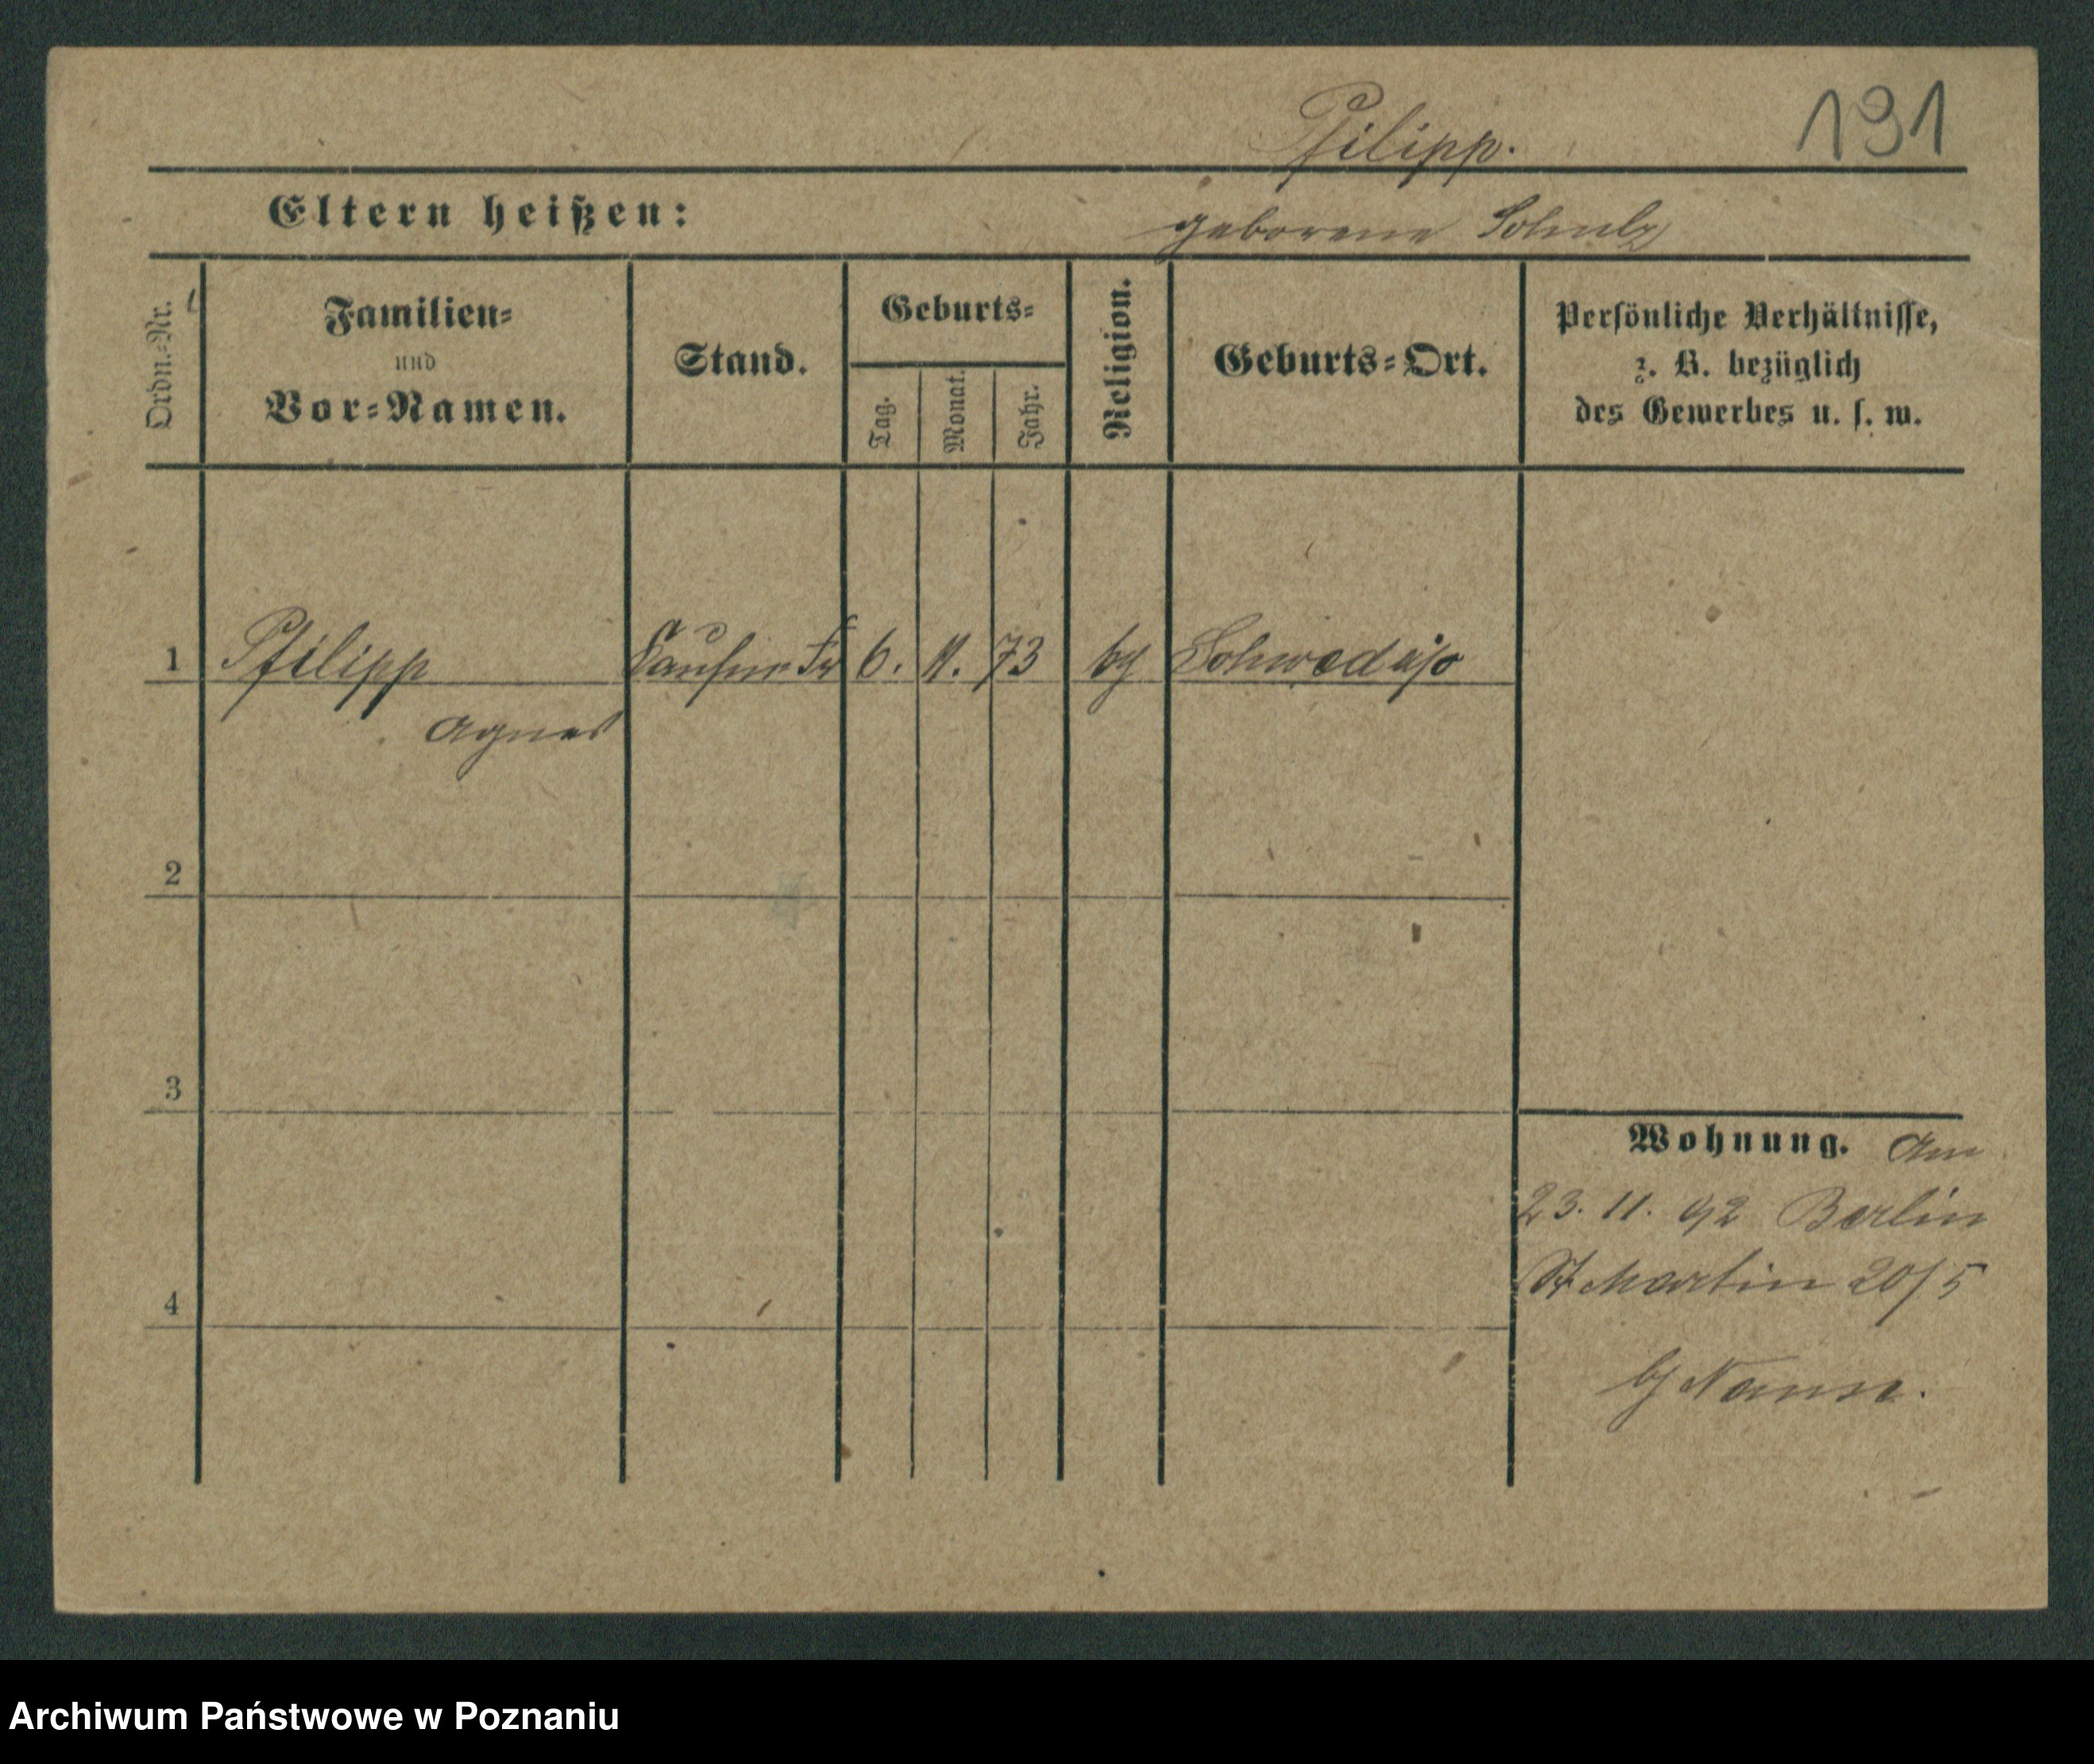 Pfilipp.
191
Eltern heißen:
geborene Schulz
Ordn.-Nr.
Familien-
und
Vor-Namen.
Stand.
Geburts-
Tag.
Monat.
Jahr.
Religion.
Geburts-Ort.
Persönliche Verhältnisse,
z. B. bezüglich
des Gewerbes u. s. w.
1 Pfilipp 6. 11. 73
Agnes
2
3
4
Wohnung. Am
23. 11. 92 Berlin
St Martin 20/5
Archiwum Państwowe w Poznaniu